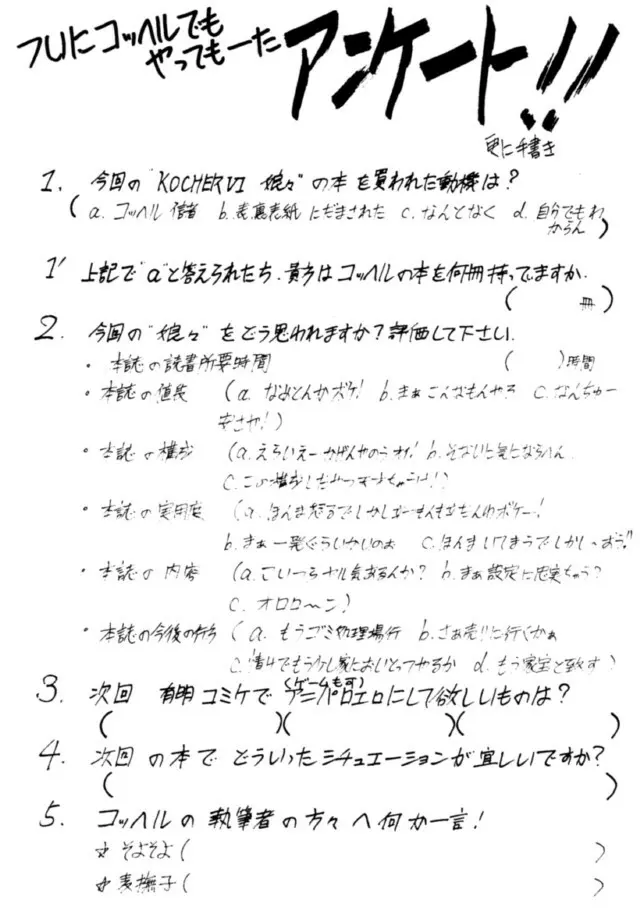 フツーにコッヘルでも
やってもーた
アンケート!!
更に手書き
1. 今回の"KOCHER VI 娘々"の本を買われた動機は?
(a. コッヘル信者 b. 表裏表紙にだまされた c. なんとなく d. 自分でもわ
からん)
1' 上記で"a"と答えられたち、貴方はコッヘルの本を何冊持ってますか.
( 冊)
2. 今回の"娘々"をどう思われますか?評価して下さい.
・本誌の読書所要時間 ( )時間
・本誌の値段 (a. なめとんかボケ! b. まぁこんなもんやろ c. なんちゅー
安さや!)
・本誌の構成 (a. えろいえーかげんやのうオイ! b. そないに気にならへん
c. この構成
・本誌の実用度 (a.
b. まぁ一発ぐらいかいのぉ c. ほんま
・本誌の内容 (a. こいつらやる気あるんか? b. まぁ設定に忠実ちゃう?
c. オロローン)
・本誌の今後の行方 (a. もうゴミ処理場行 b. さぁ売りに行くかぁ
c. 情けでもう少し家においとってやるか d. もう家宝と致す)
3. 次回 有明コミケで アニパロエロにして欲しいものは?
(ゲームも可)
( )( )( )
4. 次回の本で どういったシチュエーションが宜しいですか?
( )
5. コッヘルの執筆者の方々へ何か一言!
☆そよそよ( )
☆麦撫子( )